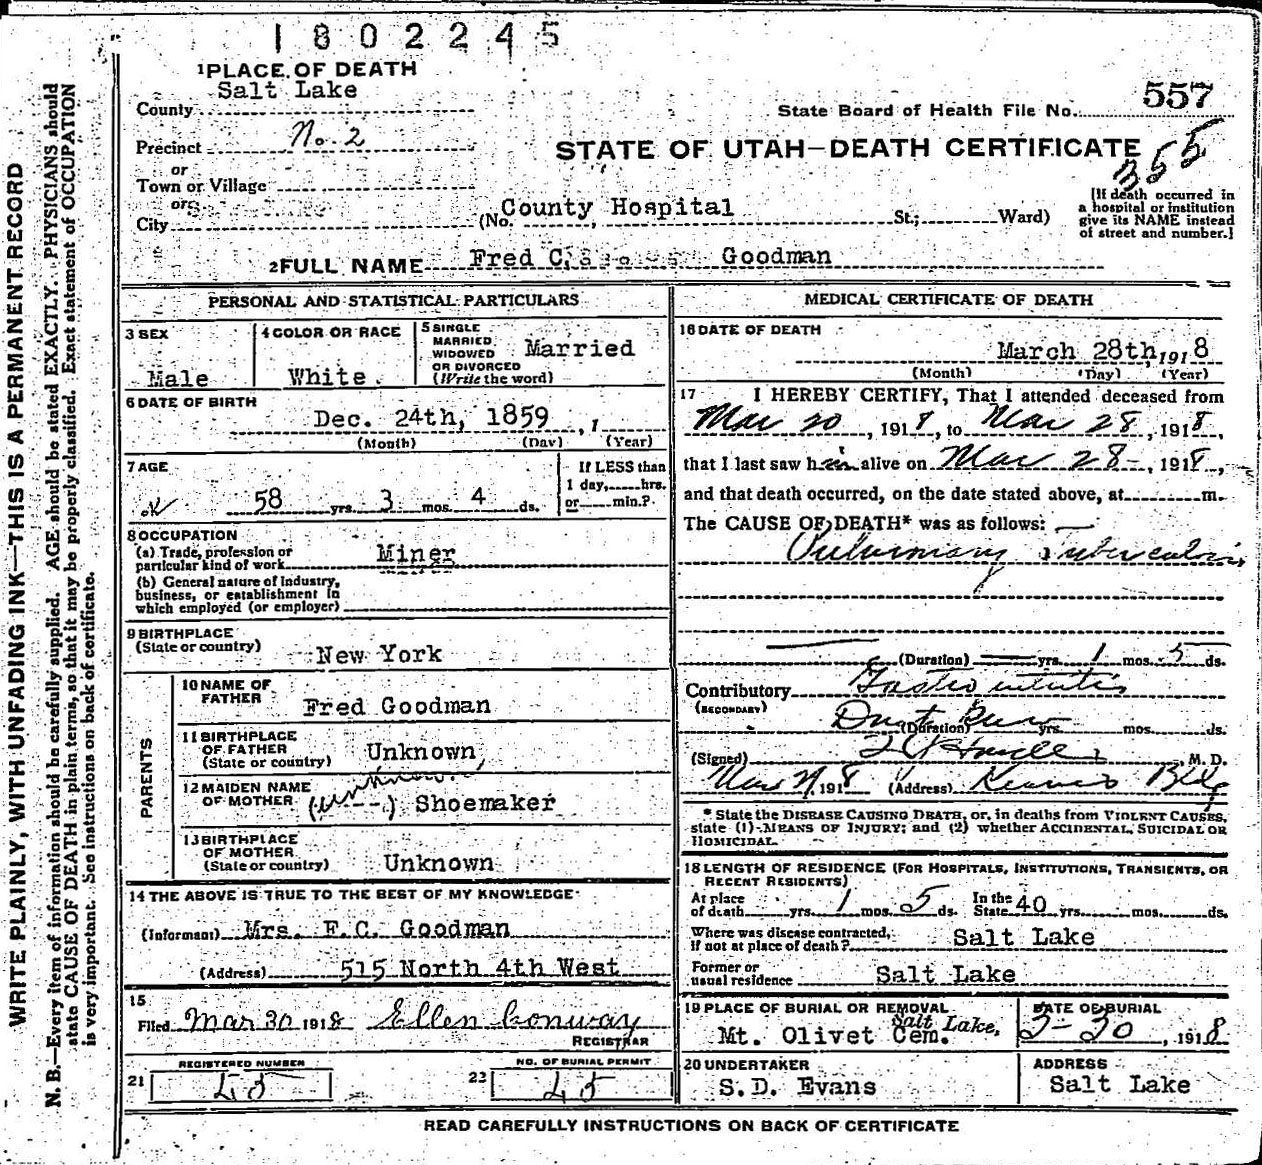 1802245
1 PLACE OF DEATH
County Salt Lake
State Board of Health File No. 557
Precinct No. 2
STATE OF UTAH—DEATH CERTIFICATE
355
or
Town or Village
or
City
(No. County Hospital St.; Ward)
[If death occurred in
a hospital or institution
give its NAME instead
of street and number.]
2 FULL NAME Fred C. Goodman
PERSONAL AND STATISTICAL PARTICULARS
3 SEX
Male
4 COLOR OR RACE
White
5 SINGLE
MARRIED
WIDOWED
OR DIVORCED
(Write the word)
Married
6 DATE OF BIRTH
Dec. 24th, 1859, 1
(Month) (Day) (Year)
7 AGE
58 yrs. 3 mos. 4 ds.
If LESS than
1 day, hrs.
or min.?
8 OCCUPATION
(a) Trade, profession or
particular kind of work Miner
(b) General nature of industry,
business, or establishment in
which employed (or employer)
9 BIRTHPLACE
(State or country) New York
PARENTS
10 NAME OF
FATHER Fred Goodman
11 BIRTHPLACE
OF FATHER
(State or country) Unknown,
12 MAIDEN NAME
OF MOTHER (unknown) Shoemaker
13 BIRTHPLACE
OF MOTHER
(State or country) Unknown
14 THE ABOVE IS TRUE TO THE BEST OF MY KNOWLEDGE
(Informant) Mrs. F.C. Goodman
(Address) 515 North 4th West
15
Filed Mar 30 1918 Ellen Conway
REGISTRAR
21 REGISTERED NUMBER
45
23 NO. OF BURIAL PERMIT
45
MEDICAL CERTIFICATE OF DEATH
16 DATE OF DEATH
March 28th, 1918
(Month) (Day) (Year)
17 I HEREBY CERTIFY, That I attended deceased from
Mar 20, 1918, to Mar 28, 1918,
that I last saw him alive on Mar 28, 1918,
and that death occurred, on the date stated above, at m.
The CAUSE OF DEATH* was as follows:
Pulmonary Tuberculosis
(Duration) yrs. 1 mos. 5 ds.
Contributory
(SECONDARY)
(Duration) mos. ds.
(Signed) M. D.
Mar, 1918 (Address) Kearns Bldg
* State the DISEASE CAUSING DEATH, or, in deaths from VIOLENT CAUSES,
state (1) MEANS OF INJURY; and (2) whether ACCIDENTAL, SUICIDAL OR
HOMICIDAL.
18 LENGTH OF RESIDENCE (FOR HOSPITALS, INSTITUTIONS, TRANSIENTS, OR
RECENT RESIDENTS)
At place
of death yrs. 1 mos. 5 ds. In the
State 40 yrs. mos. ds.
Where was disease contracted,
if not at place of death? Salt Lake
Former or
usual residence Salt Lake
19 PLACE OF BURIAL OR REMOVAL
Mt. Olivet Cem. Salt Lake,
DATE OF BURIAL
3-30, 1918
20 UNDERTAKER
S.D. Evans
ADDRESS
Salt Lake
READ CAREFULLY INSTRUCTIONS ON BACK OF CERTIFICATE
WRITE PLAINLY, WITH UNFADING INK—THIS IS A PERMANENT RECORD
N. B.—Every item of information should be carefully supplied. AGE should be stated EXACTLY. PHYSICIANS should
state CAUSE OF DEATH in plain terms, so that it may be properly classified. Exact statement of OCCUPATION
is very important. See instructions on back of certificate.